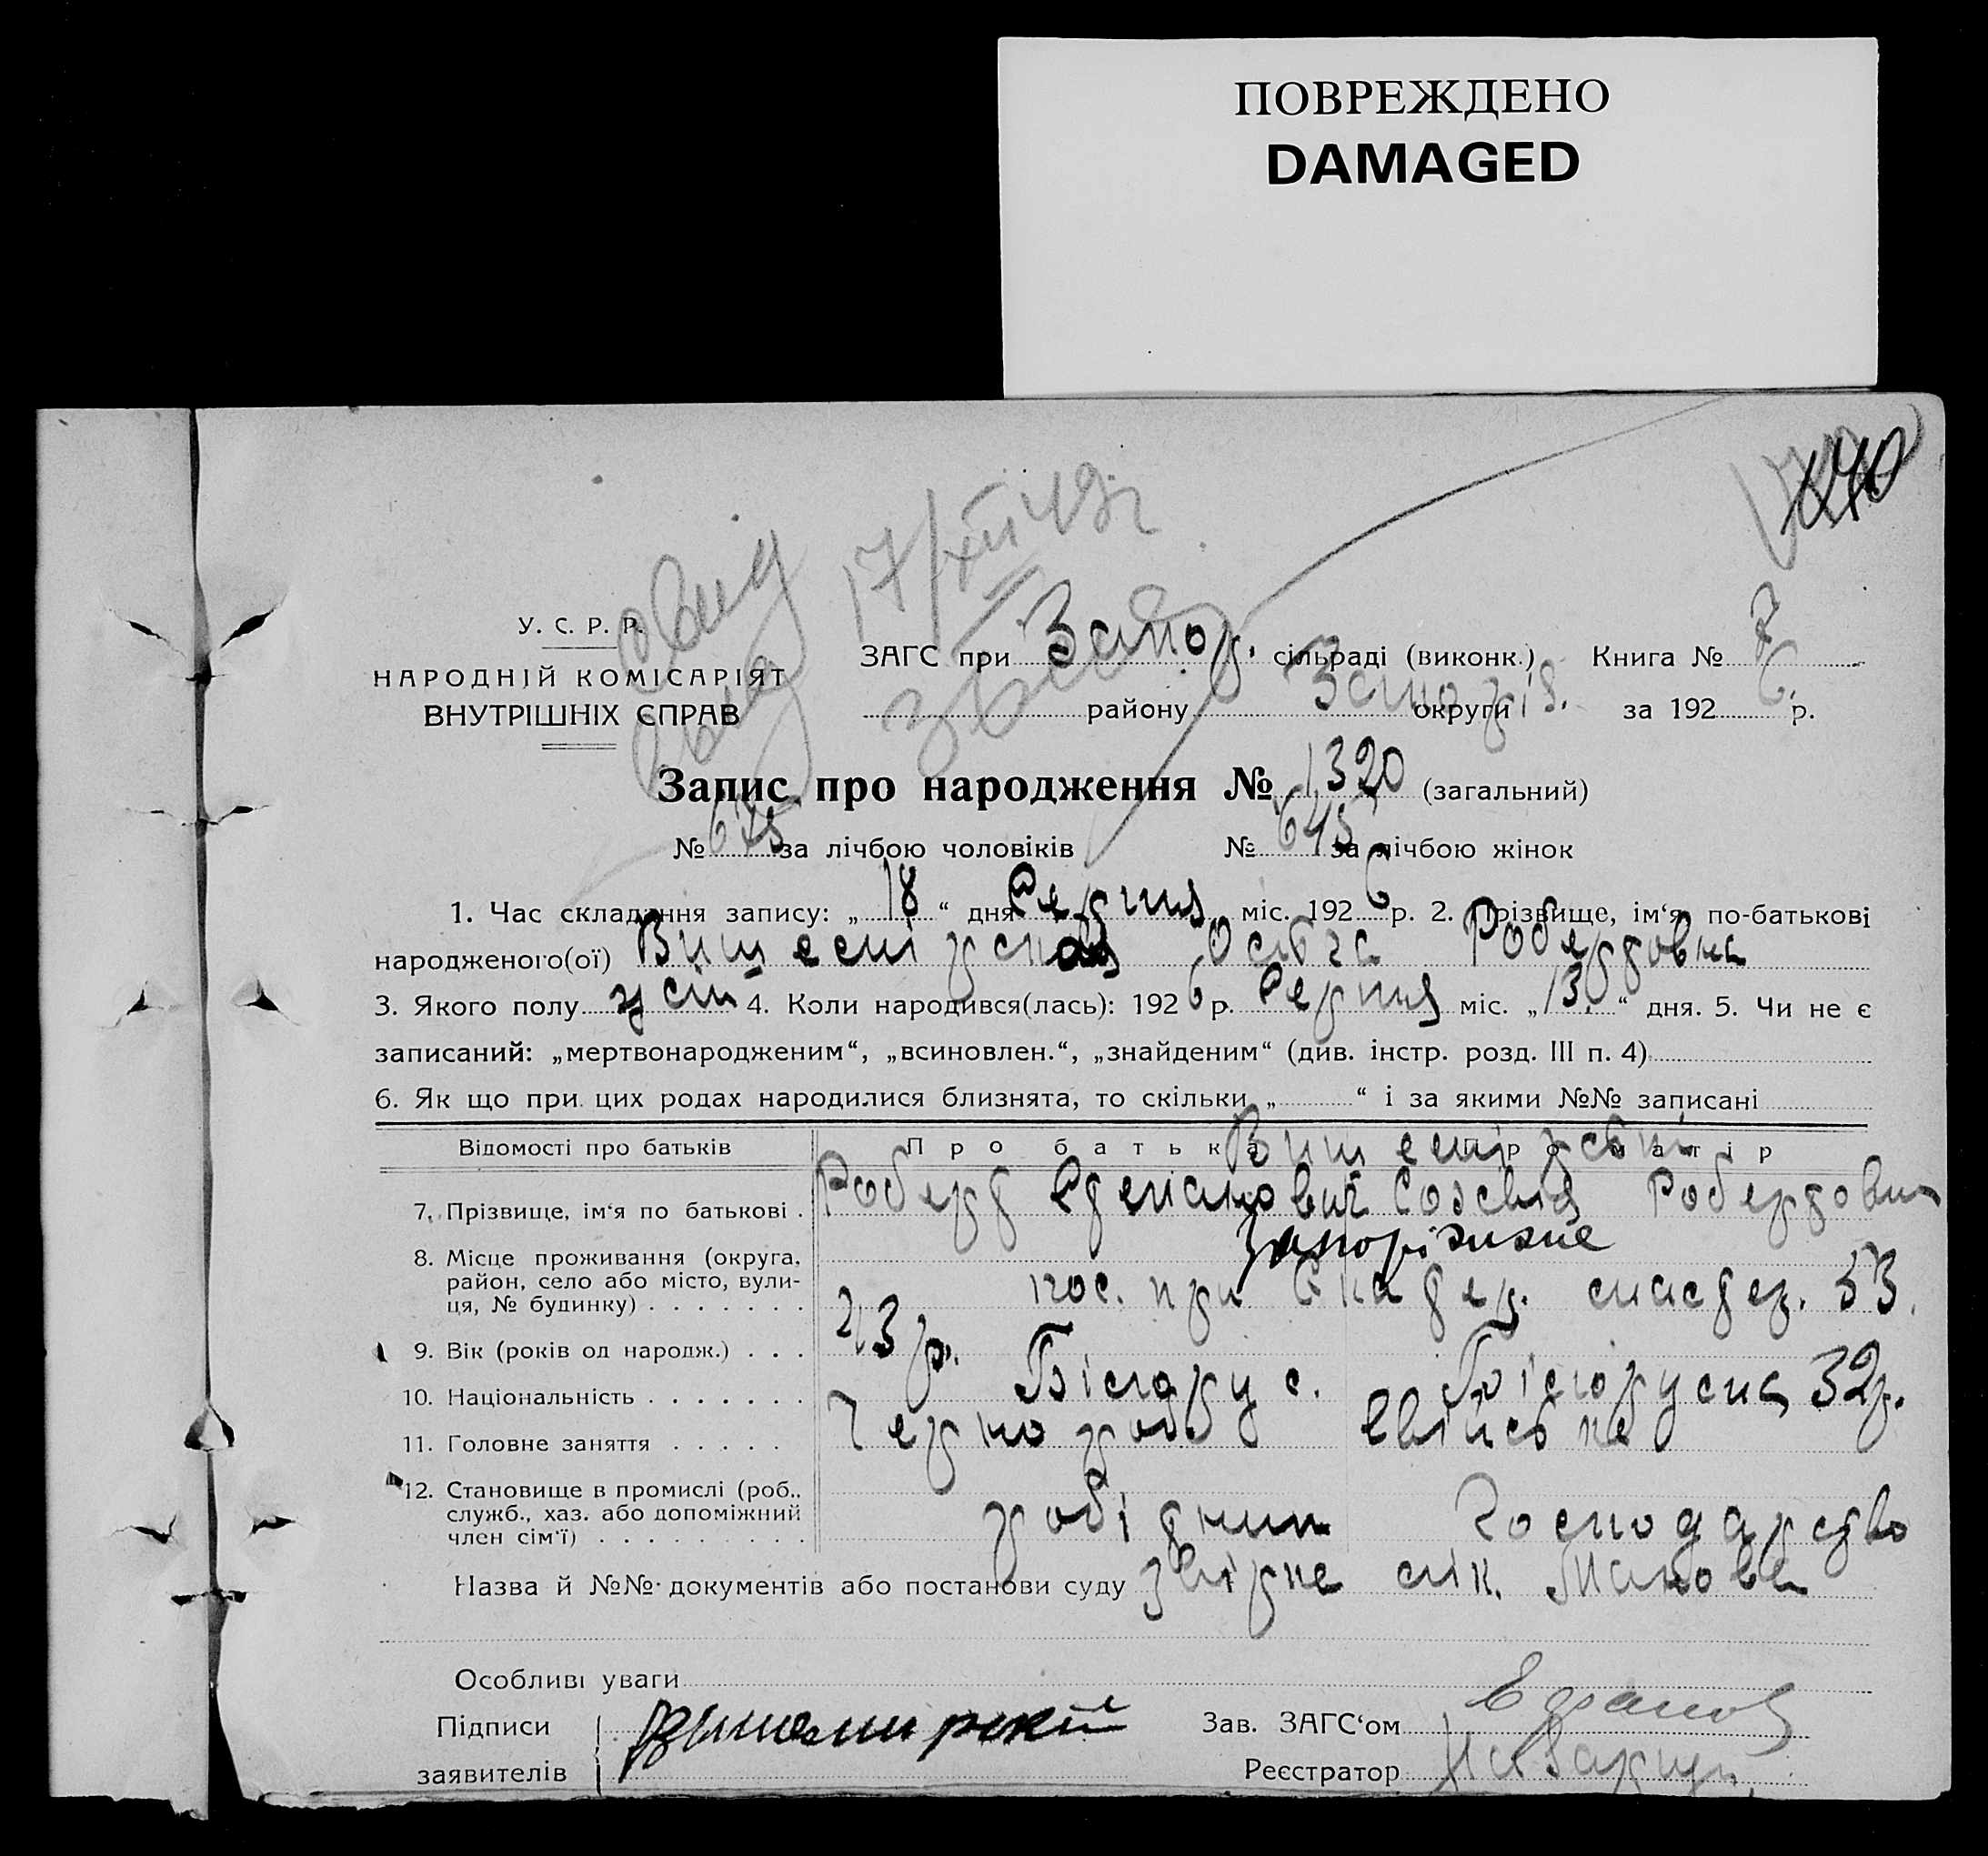 ПОВРЕЖДЕНО
DAMAGED
17/XII 49г
У. С. Р. Р.
НАРОДНІЙ КОМІСАРІЯТ
ВНУТРІШНІХ СПРАВ
ЗАГС при Запор. сільраді (виконк.) Книга № 7
району Запоріз. округи за 1926 р.
Запис про народження № 1320 (загальний)
№ 675 за лічбою чоловіків № 645 за лічбою жінок
1. Час складання запису: „18“ дня Серпня міс. 1926 р. 2. Прізвище, ім‘я, по-батькові
народженого(ої) Робердовна
3. Якого полу жін 4. Коли народився(лась): 1926 р. Серпня міс. „13“ дня. 5. Чи не є
записаний: „мертвонародженим“, „всиновлен.“, „знайденим“ (див. інстр. розд. III п. 4)
6. Як що при цих родах народилися близнята, то скільки „ “ і за якими №№ записані
Відомості про батьків Про батька Про матір
7. Прізвище, ім‘я по батькові . Роберд Робердовна
8. Місце проживання (округа,
район, село або місто, вули-
ця, № будинку) . . . . . . . Запоріжжє
пос. при 53.
9. Вік (років од народж.) . . . 23 р.
10. Національність . . . . . . . Білорус. Білоруска 32р.
11. Головне заняття . . . . . Чернороб
12. Становище в промислі (роб.,
служб., хаз. або допоміжний
член сім‘ї) . . . . . . . . . робітник Господарство
Назва й №№ документів або постанови суду
Особливі уваги
Підписи
заявителів
Зав. ЗАГС‘ом
Реєстратор